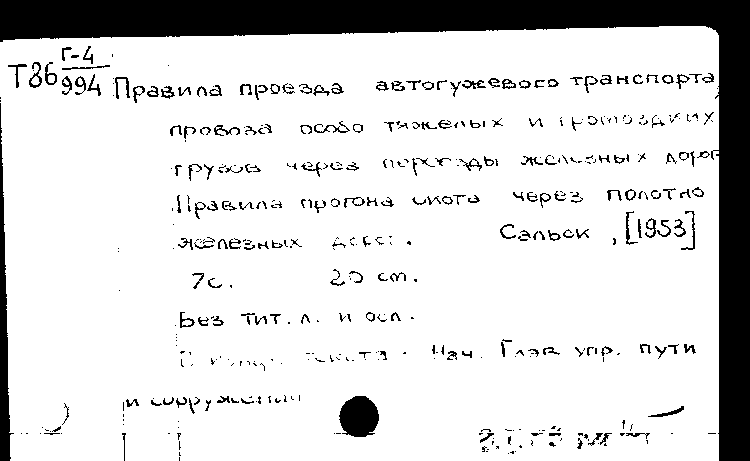 Г-4
Т86 994 Правила проезда автогужевого транспорта,
провоза особо тяжелых и громоздких
грузов через переезды железных дорог
Правила прогона скота через полотно
железных дорог. Сальск, [1953]
7с. 20 cm.
Без тит. л. и осл.
В конце текста: Нач. Глав упр. пути
и сооружений